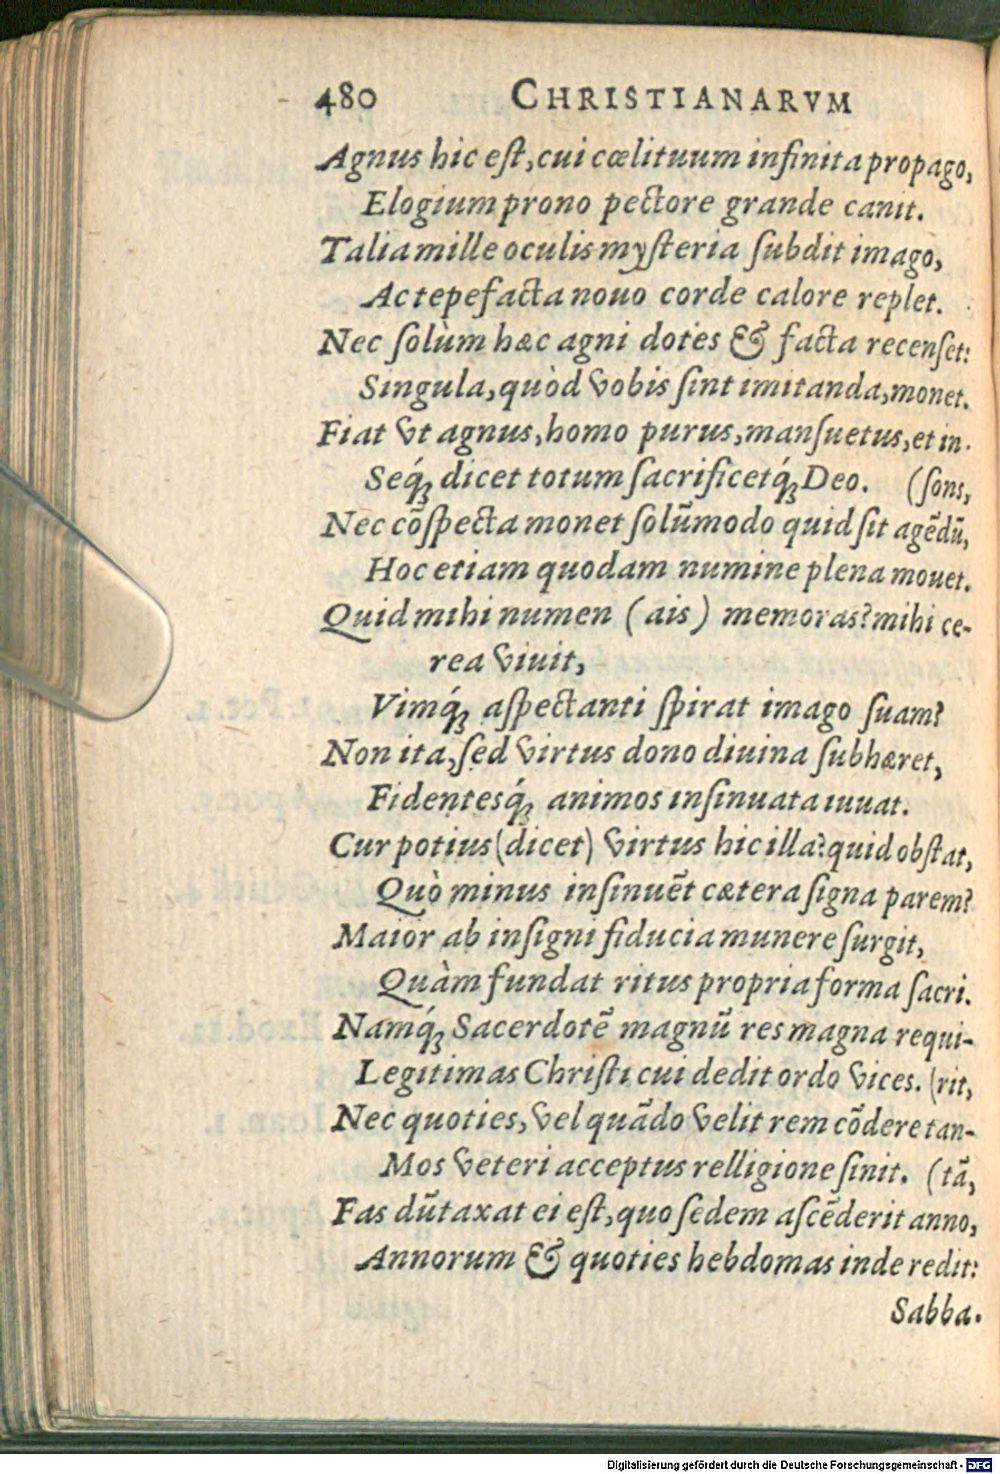 480 CHRISTIANARVM
Agnus hic eſt, cui cœlituum infinita propago,
Elogium prono pectore grande canit.
Talia mille oculis myſteria ſubdit imago,
Ac tepefacta nouo corde calore replet.
Nec ſolùm hæc agni dotes & facta recenſet:
Singula, quòd vobis ſint imitanda, monet.
Fiat vt agnus, homo purus, manſuetus, et in-
Seq́ꝫ dicet totum ſacrificetq́ꝫ Deo. (ſons,
Nec cõſpecta monet ſolũmodo quid ſit agẽdũ,
Hoc etiam quodam numine plena mouet.
Quid mihi numen (ais) memoras? mihi ce-
rea viuit,
Vimq́ꝫ aſpectanti ſpirat imago ſuam?
Non ita, ſed virtus dono diuina ſubhæret,
Fidentesq́ꝫ animos inſinuata iuuat.
Cur potius (dicet) virtus hic illa? quid obſtat,
Quò minus inſinuẽt cætera ſigna parem?
Maior ab inſigni fiducia munere ſurgit,
Quàm fundat ritus propria forma ſacri.
Namq́ꝫ Sacerdotẽ magnũ res magna requi-
Legitimas Chriſti cui dedit ordo vices. (rit,
Nec quoties, vel quãdo velit rem cõdere tan-
Mos veteri acceptus relligione ſinit. (tã,
Fas dũtaxat ei eſt, quo ſedem aſcẽderit anno,
Annorum & quoties hebdomas inde redit:
Sabba-
Digitalisierung gefördert durch die Deutsche Forschungsgemeinschaft - DFG